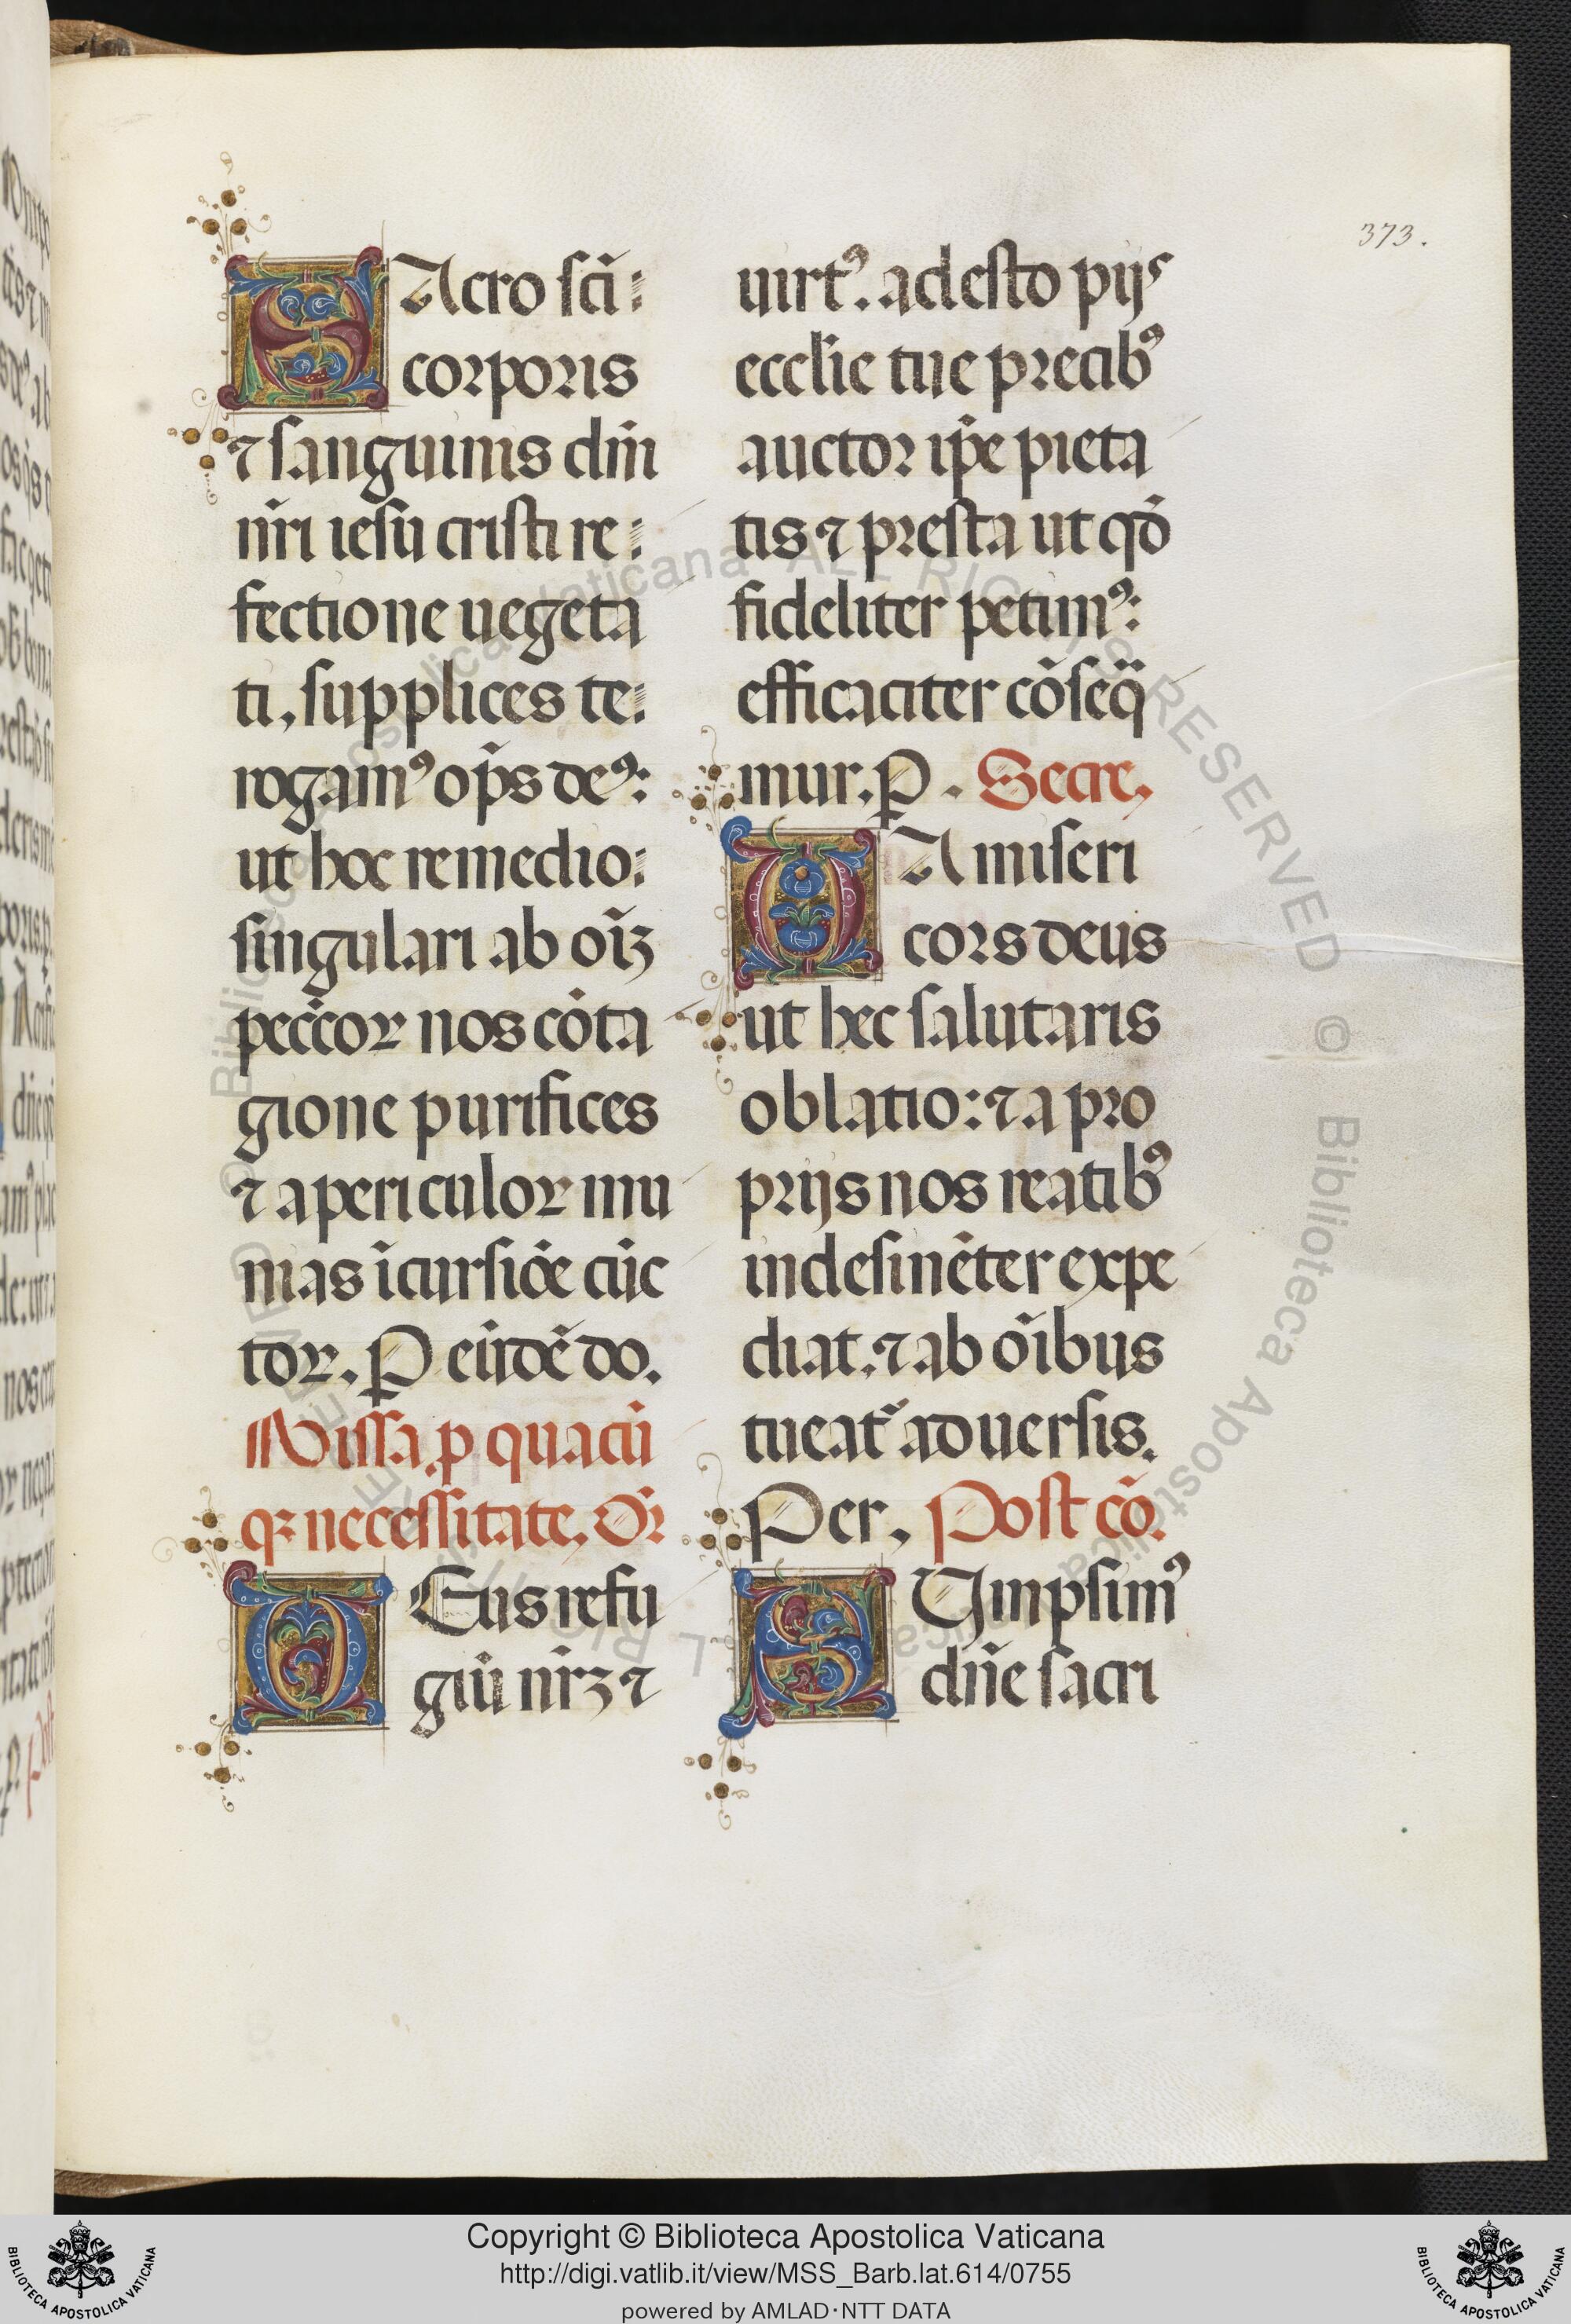 373.
SAcro sc̄i:
corporis
⁊ sanguinis dn̄i
nr̄i iesu cristi re:
fectione uegeta
ti, supplices te:
rogamꝰ op̄s deꝰ:
ut hoc remedio:
singulari ab oīꝫ
pecc̄oꝝ nos cōta
gione purifices
⁊ a periculoꝝ mu
mas īcursiōe cūc
toꝝ. P eūdē do.
Missa p quacū
qꝫ necessitate. Or̄
DEus refu
giū nr̄ꝫ ⁊
uirtꝰ. adesto pijs
ecclie tue precibꝰ
auctor ip̄e pieta
tis ⁊ presta ut qd̄
fideliter petimꝰ:
efficaciter cōseq̄
mur. P. Secre.
DA miseri
cors deus
ut hec salutaris
oblatio: ⁊ a pro
prijs nos reatibꝰ
indesinēter expe
diat. ⁊ ab oībus
tueat᷑ aduersis.
Per. Post cō.
SUmpsimꝰ
dn̄e sacri
Copyright © Biblioteca Apostolica Vaticana
http://digi.vatlib.it/view/MSS_Barb.lat.614/0755
powered by AMLAD·NTT DATA
BIBLIOTECA APOSTOLICA VATICANA
BIBLIOTECA APOSTOLICA VATICANA